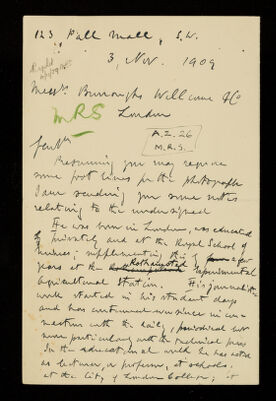 123 Pall Mall, S.W.
3, Nov. 1909
Messrs. Burroughs Wellcome & Co
London
MRS
A.2.26
M.R.S.
Gentn
Presuming you may require
some foot lines for the photograph
I am sending you some notes
relating to the undersigned
He was born in London, was educated
privately and at the Royal School of
Mines; supplementing this by a few
years at the Rothamsted Experimental
Agricultural Station. His journalistic
work started in his student days
and has continued ever since in con-
nection with the daily, periodical but
more particularly with the technical press
In the educational world he has acted
as lecturer, or professor, at schools.
at the City of London College; at